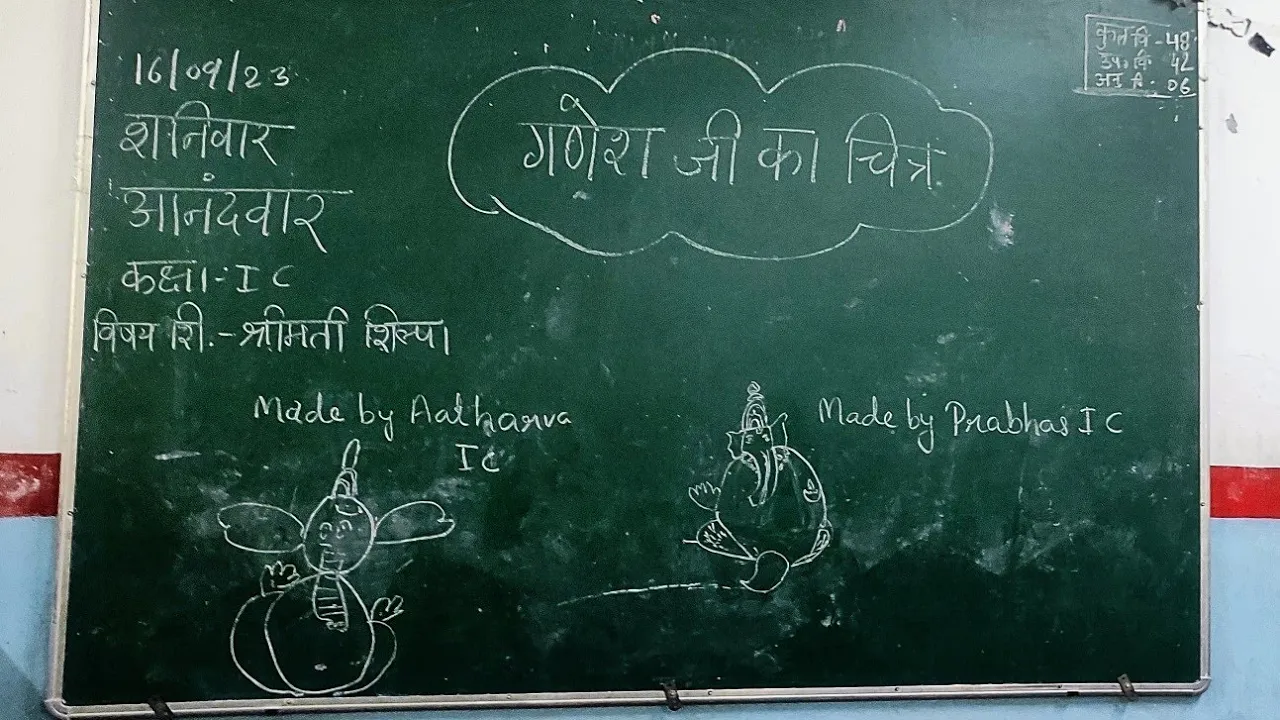 16/09/23
शनिवार
आनंदवार
कक्षा-: I C
विषय शि.- श्रीमती शिल्पा
गणेश जी का चित्र
कुल वि - 48
उप. वि 42
अनु वि - 06
Made by Aatharva
I C
Made by Prabhas I C